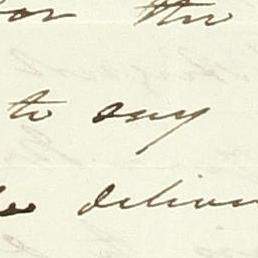 for the
to any
deliver